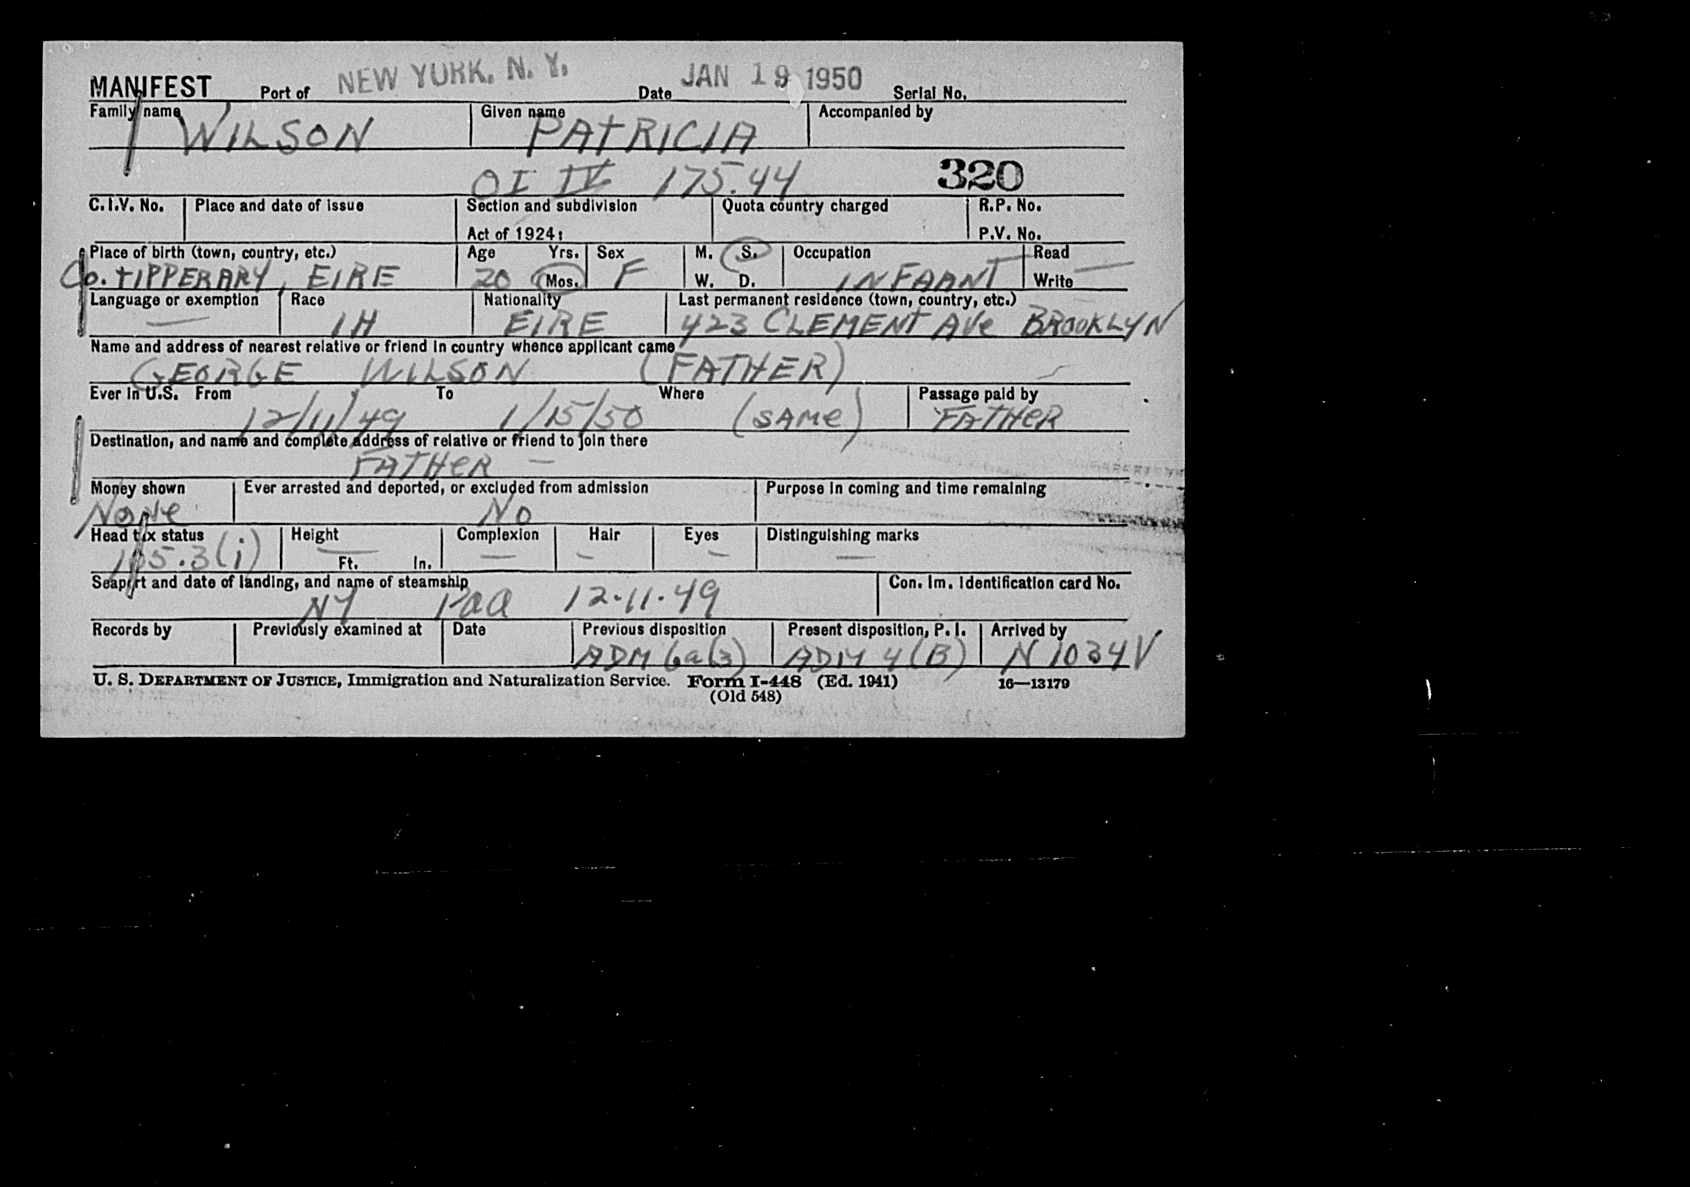 MANIFEST Port of NEW YORK, N. Y. Date JAN 19 1950 Serial No.
Family name WILSON Given name PATRICIA Accompanied by
OI IV 175.44 320
C.I.V. No. Place and date of issue Section and subdivision Quota country charged R.P. No.
Act of 1924: P.V. No.
Place of birth (town, country, etc.) Age Yrs. Sex M. S. Occupation Read
Co. TIPPERARY, EIRE 20 Mos. F W. D. INFAANT Write
Language or exemption Race Nationality Last permanent residence (town, country, etc.)
— IH EIRE 423 CLEMENT AVe BROOKLYN
Name and address of nearest relative or friend in country whence applicant came
GEORGE WILSON (FATHER)
Ever in U.S. From To Where Passage paid by
12/11/49 1/15/50 (SAMe) FATHeR
Destination, and name and complete address of relative or friend to join there
FATHeR —
Money shown Ever arrested and deported, or excluded from admission Purpose in coming and time remaining
NoNe No
Head tax status Height Complexion Hair Eyes Distinguishing marks
105.3(i) — Ft. In. — — — —
Seaport and date of landing, and name of steamship Con. Im. Identification card No.
NY Paa 12-11-49
Records by Previously examined at Date Previous disposition Present disposition, P. I. Arrived by
ADM 6a(3) ADM 4(B) N 1034V
U. S. DEPARTMENT OF JUSTICE, Immigration and Naturalization Service. Form I-448 (Ed. 1941) 16—13179
(Old 548)